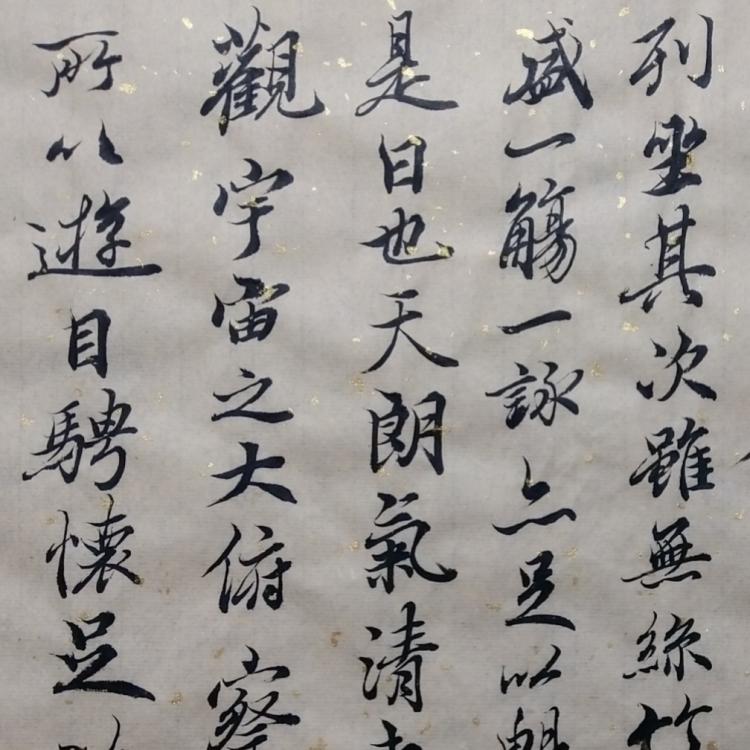 列坐其次雖無絲竹
盛一觴一詠亦足以暢
是日也天朗氣清
觀宇宙之大俯察
所以遊目騁懷足以